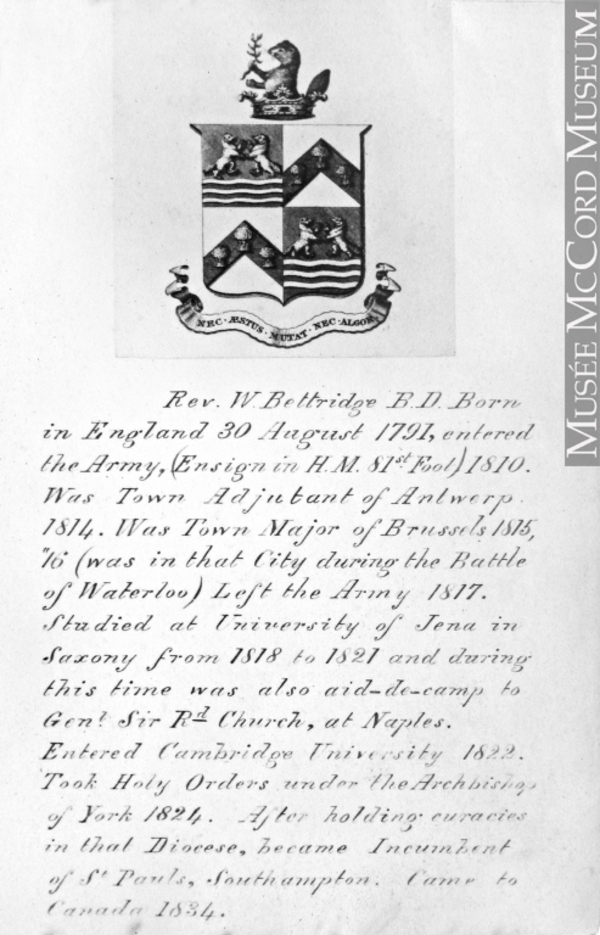 NEC · ÆSTUS · MUTAT · NEC · ALGOR
Rev. W. Bettridge B.D. Born
in England 30 August 1791, entered
the Army, (Ensign in H.M. 81st Foot) 1810.
Was Town Adjutant of Antwerp
1814. Was Town Major of Brussels 1815,
"16 (was in that City during the Battle
of Waterloo) Left the Army 1817.
Studied at University of Jena in
Saxony from 1818 to 1821 and during
this time was also aid-de-camp to
Genl Sir Rd Church, at Naples.
Entered Cambridge University 1822.
Took Holy Orders under the Archbishop
of York 1824. After holding curacies
in that Diocese, became Incumbent
of St Pauls, Southampton. Came to
Canada 1834.
MUSÉE MCCORD MUSEUM